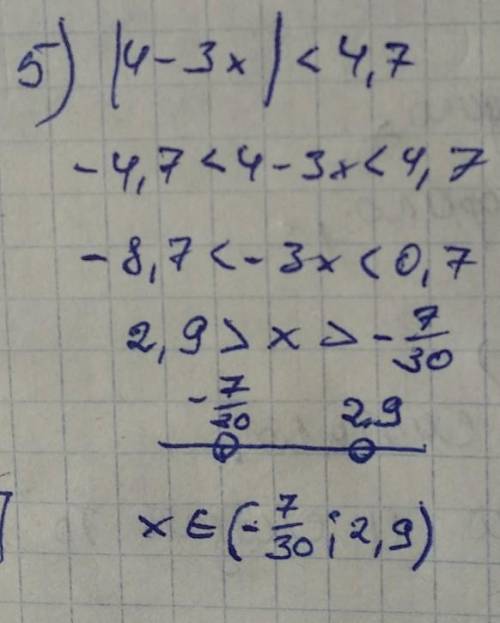 5) |4 - 3x| < 4,7
- 4,7 < 4 - 3x < 4,7
- 8,7 < - 3x < 0,7
2,9 > x > - 7/30
- 7/30 2,9
x ∈ (- 7/30 ; 2,9)